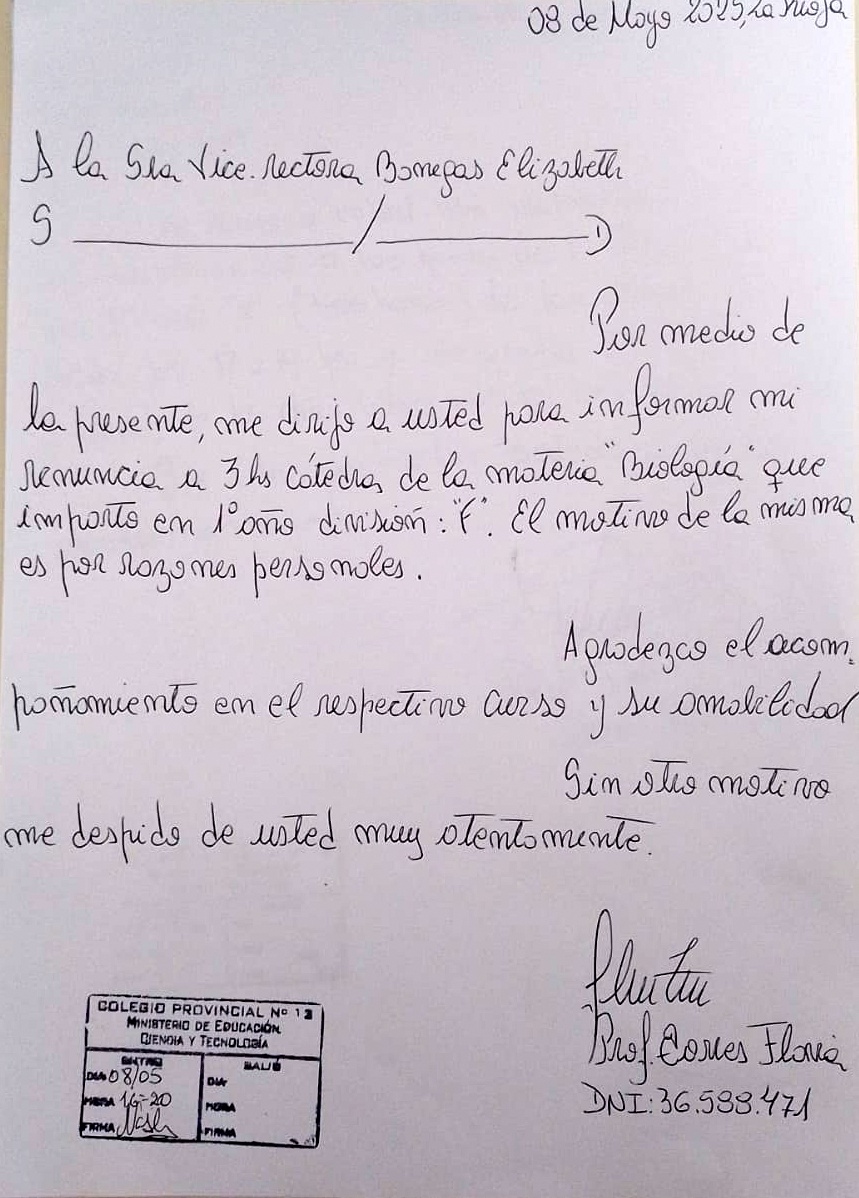 08 de Mayo 2025, La Rioja
A la Sra Vice-rectora Bonegas Elizabeth
S ________/________D
Por medio de
la presente, me dirijo a usted para informar mi
renuncia a 3hs cátedra, de la materia "Biología" que
imparto en 1° año división: "F". El motivo de la misma
es por razones personales.
Agradezco el acom-
pañamiento en el respectivo curso y su amabilidad
Sin otro motivo
me despido de usted muy atentamente.
Prof. Flavia
DNI: 36.599.471
COLEGIO PROVINCIAL Nº 13
MINISTERIO DE EDUCACIÓN
CIENCIA Y TECNOLOGÍA
ENTRO SALIÓ
DIA 08/05 DIA
HORA 16-20 HORA
FIRMA FIRMA